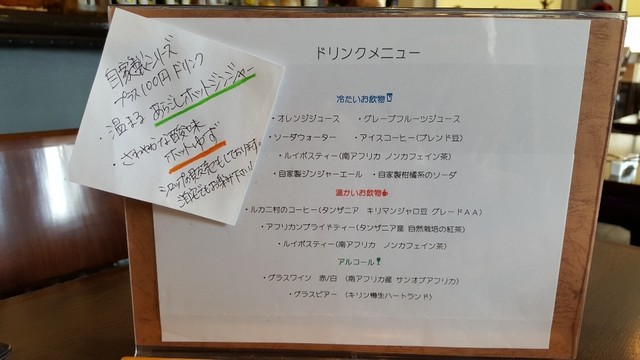 自家製シリーズ
プラス100円ドリンク
・温まる あらごしホットジンジャー
・さわやかな酸味
ホットゆず
シロップの販売もしております。
ドリンクメニュー
冷たいお飲物
・オレンジジュース ・グレープフルーツジュース
・ソーダウォーター ・アイスコーヒー(ブレンド豆)
・ルイボスティー(南アフリカ ノンカフェイン茶)
・自家製ジンジャーエール ・自家製柑橘系のソーダ
温かいお飲物
・ルカニ村のコーヒー(タンザニア キリマンジャロ豆 グレードAA)
・アフリカンプライドティー(タンザニア産 自然栽培の紅茶)
・ルイボスティー(南アフリカ ノンカフェイン茶)
アルコール
・グラスワイン 赤/白 (南アフリカ産 サンオブアフリカ)
・グラスビアー (キリン樽生ハートランド)